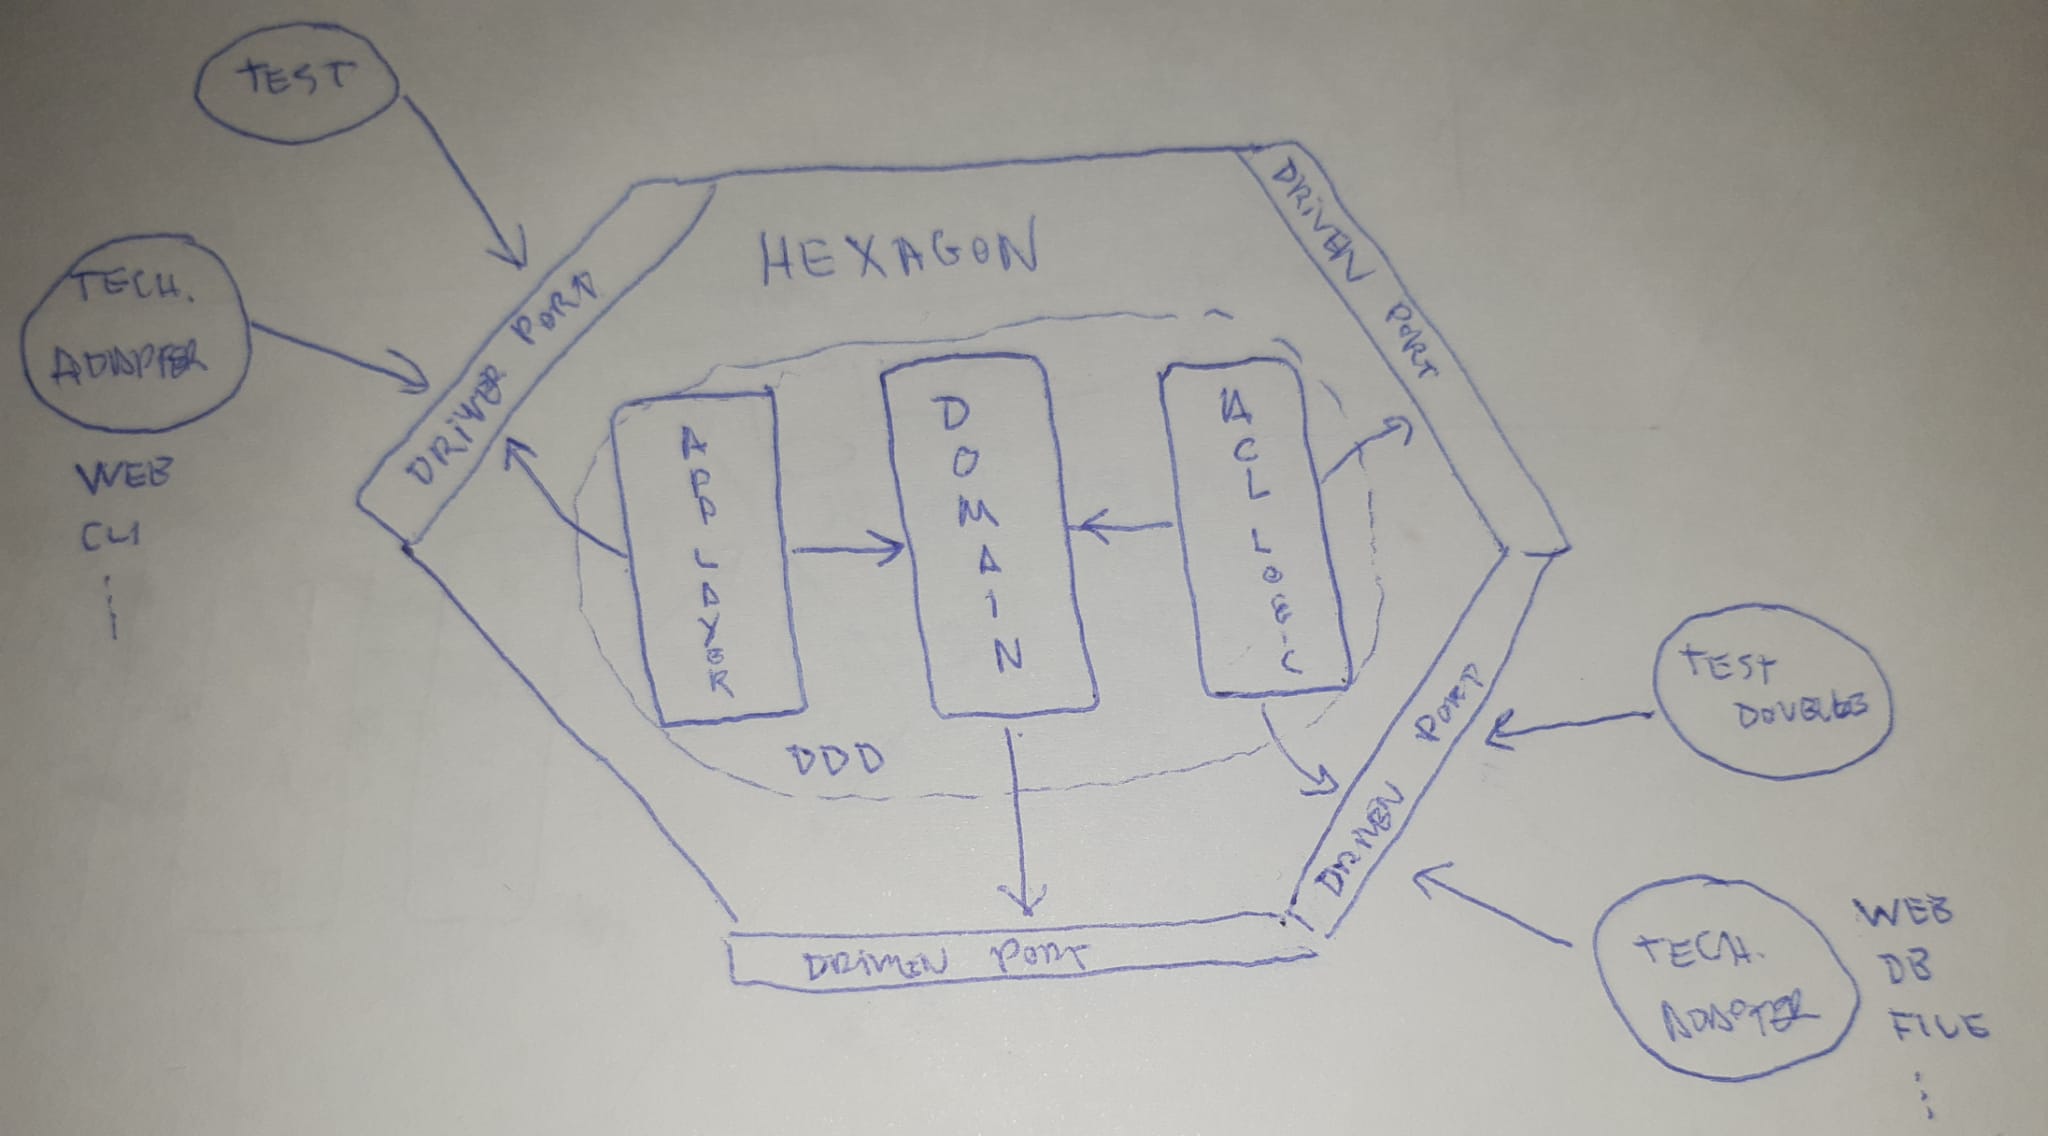 TEST
TECH.
ADAPTER
WEB
CLI
DRIVER PORT
HEXAGON
DRIVEN PORT
APP LAYER
DOMAIN
ACL LOGIC
DDD
DRIVEN PORT
DRIVEN PORT
TEST
DOUBLES
TECH.
ADAPTER
WEB
DB
FILE